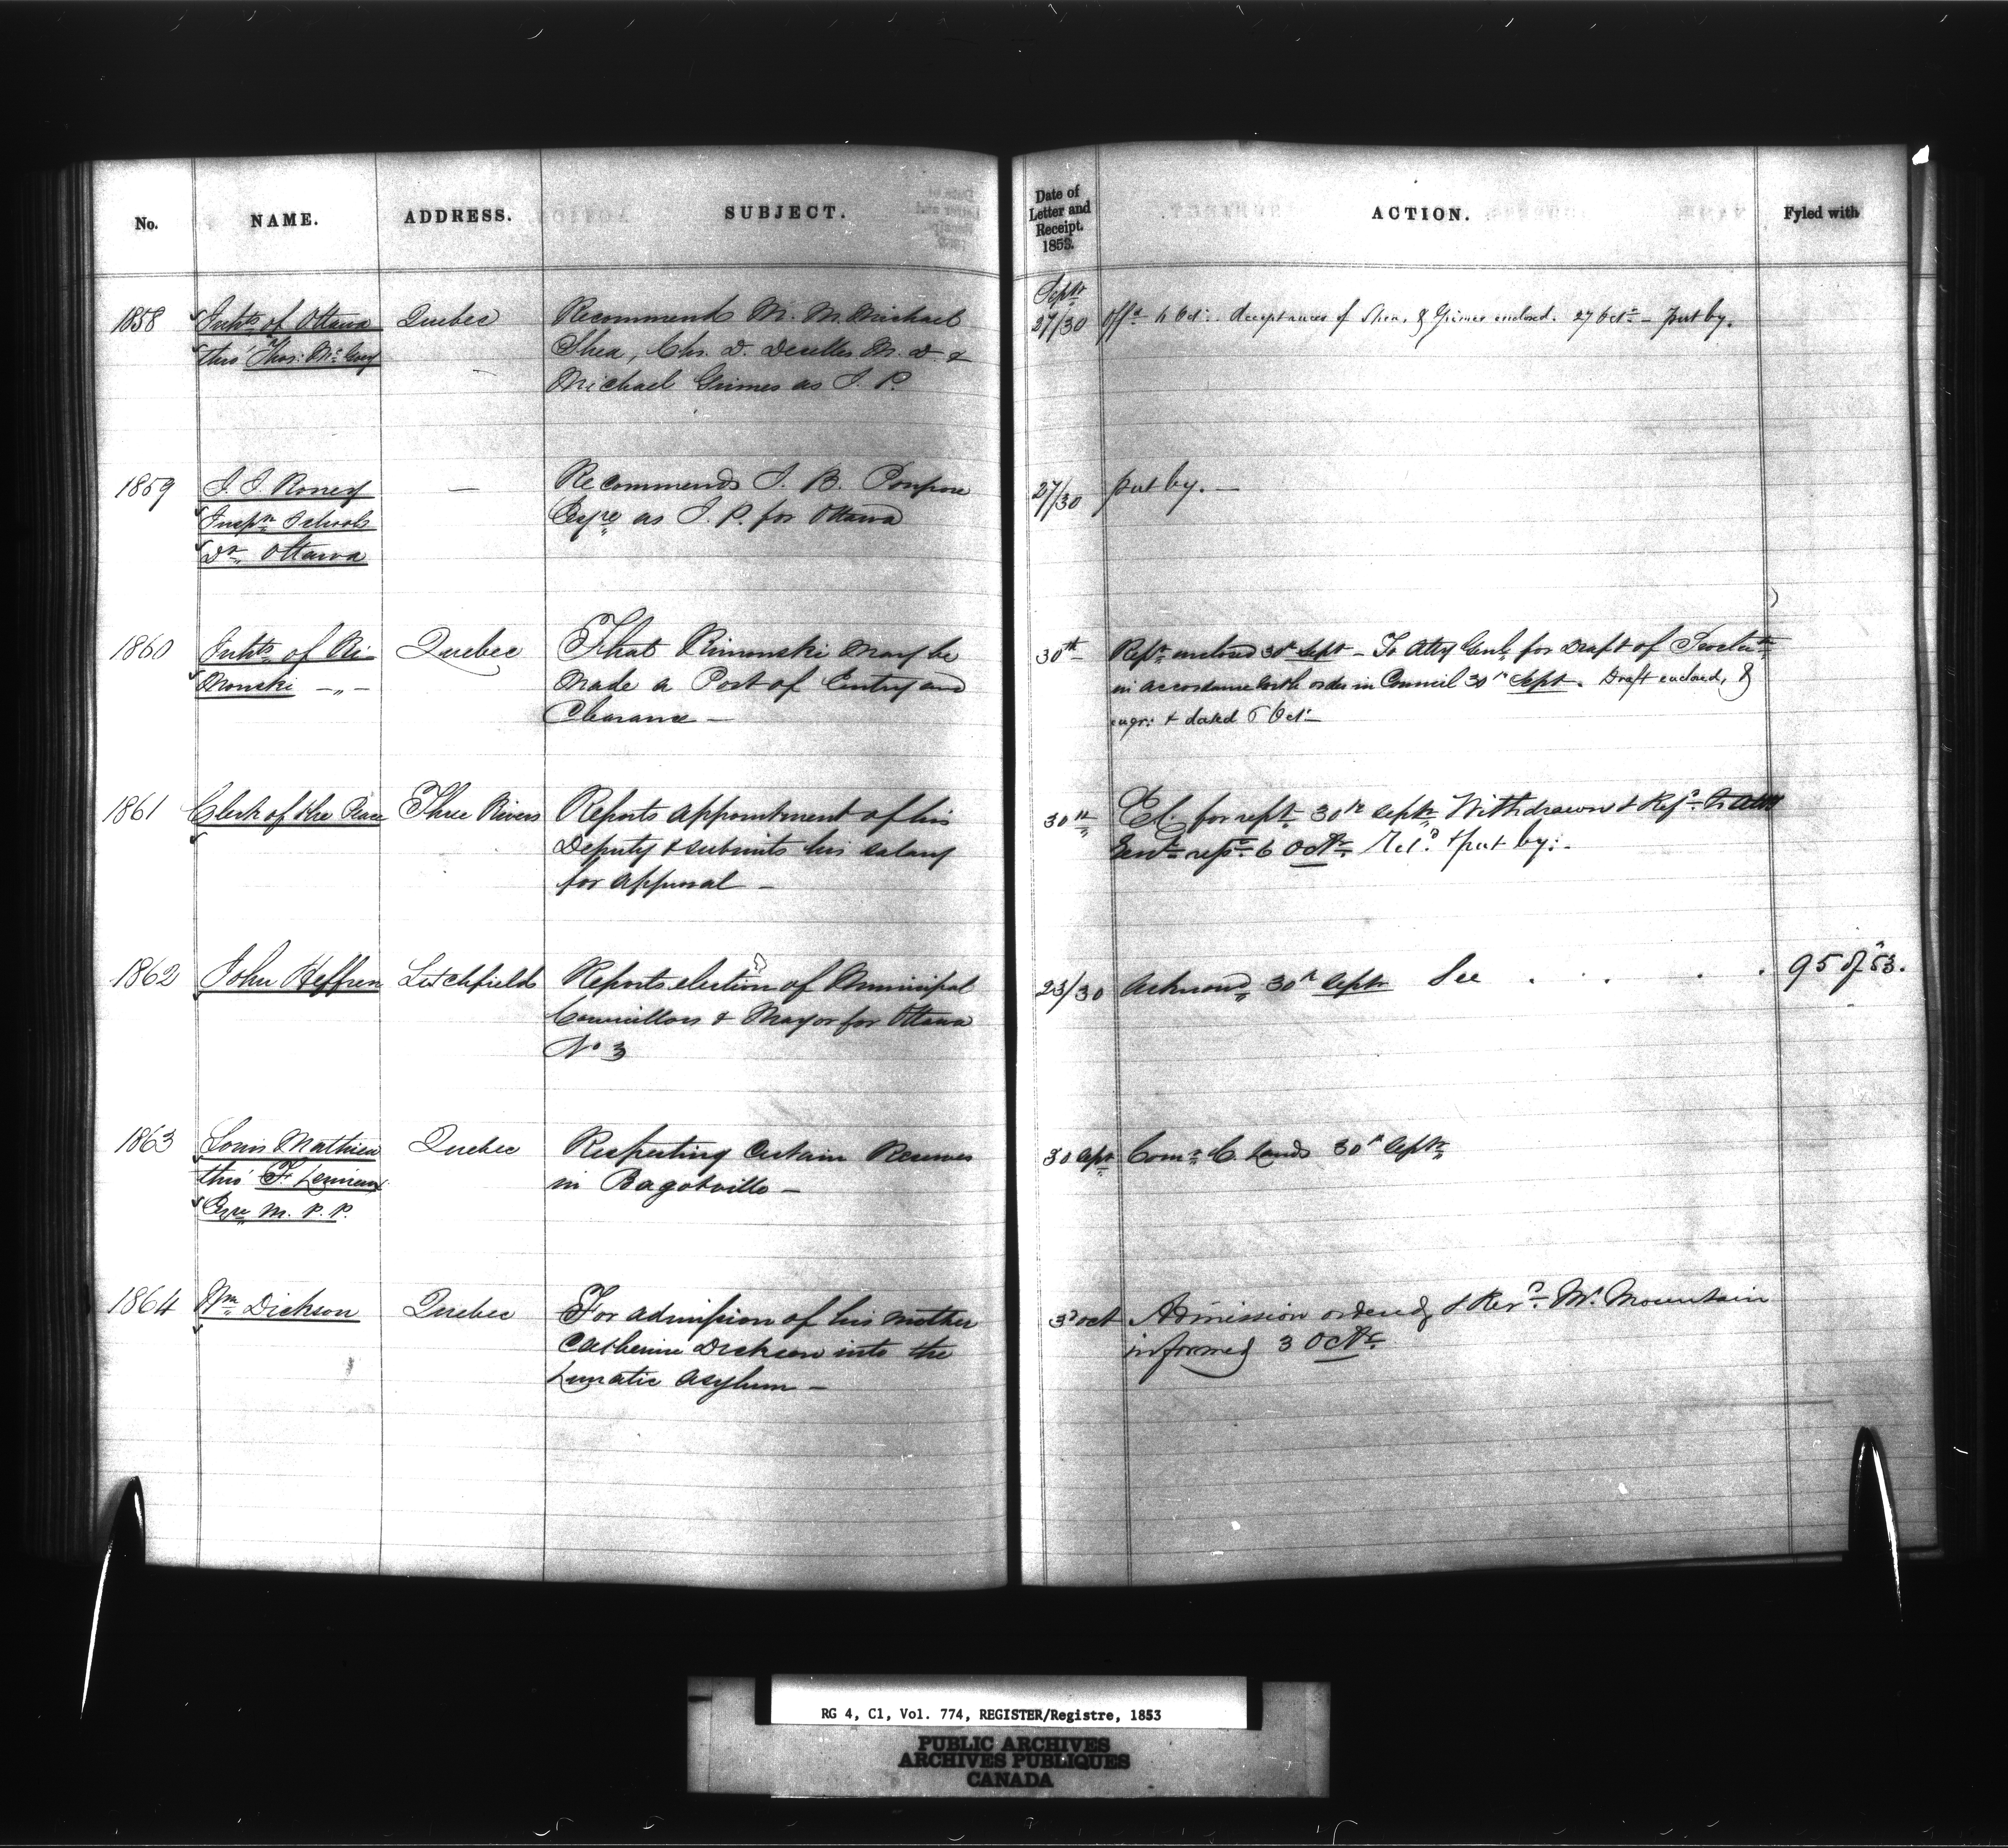 No. NAME. ADDRESS. SUBJECT.
Date of
Letter and
Receipt.
1853.
ACTION. Fyled with
1858 Inhts of Ottawa Quebec Recommends M. M. Michael
thro' Thos: McGoey Shea, Chs. D. M. D. &
Michael Grimes as J. P.
Septr
27/30 6 Octr. Acceptances of Shea, & Grimes enclosed. 27 Octr – put by.
1859 J. J. Roney — Recommends J. B.
Inspr Schools Esqre as J. P. for Ottawa
Dn Ottawa
27/30 put by. —
1860 Inhts of Ri- Quebec That Rimouski may be
mouski –„– made a Port of Entry and
Clearance –
30th Rept enclosed 30th Sept – To Atty Genl for Draft of
in accordance with order in Council 30th Sept. Draft enclosed, &
engr: & dated 6 Octr
1861 Clerk of the Peace Three Rivers Reports appointment of his
Deputy & submits his salary
for approval –
30th for rept 30th Septr Withdrawn & Refd
Genl 6 Octr. & put by:-
1862 John Heffren Litchfield Reports election of Municipal
Councillors & Mayor for Ottawa
No 3
23/30 Acknowd 30th Septr See . . . . 95 of 53.
1863 Louis Mathieu Quebec Respecting certain Reserves
thro' F. Lemieux in Bagotville –
Esqre M. P. P.
30 Sept Comr C. Lands 30th Septr
1864 Wm Dickson Quebec For admission of his mother
Catherine Dickson into the
Lunatic Asylum –
3d Oct Admission ordered, & Revd Mr. Mountain
informed 3 Octr.
RG 4, C1, Vol. 774, REGISTER/Registre, 1853
PUBLIC ARCHIVES
ARCHIVES PUBLIQUES
CANADA